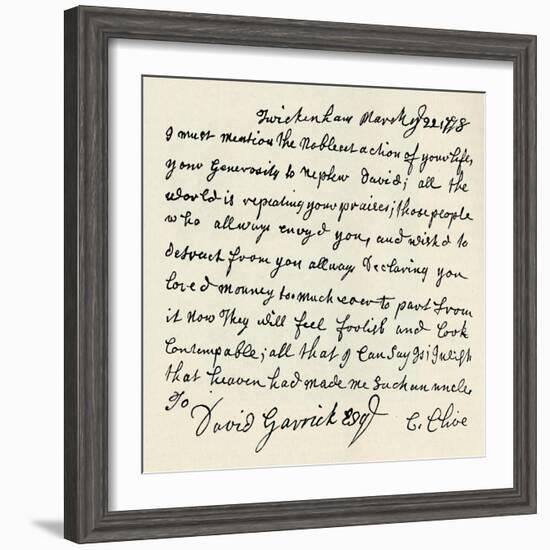 Twickenham March ye 22 1778
I must mention the Noblest action of your life,
your Generosity to Nephew David; all the
world is repeating your praises; those people
who allways envyd you, and wishd to
detract from you allways Declaring you
loved monney too much ever to part from
it now They will feel foolish and look
Contempable; all that I Can Say Is; I wish
that heaven had made me Such an uncle.
To
David Garrick Esqr C. Clive